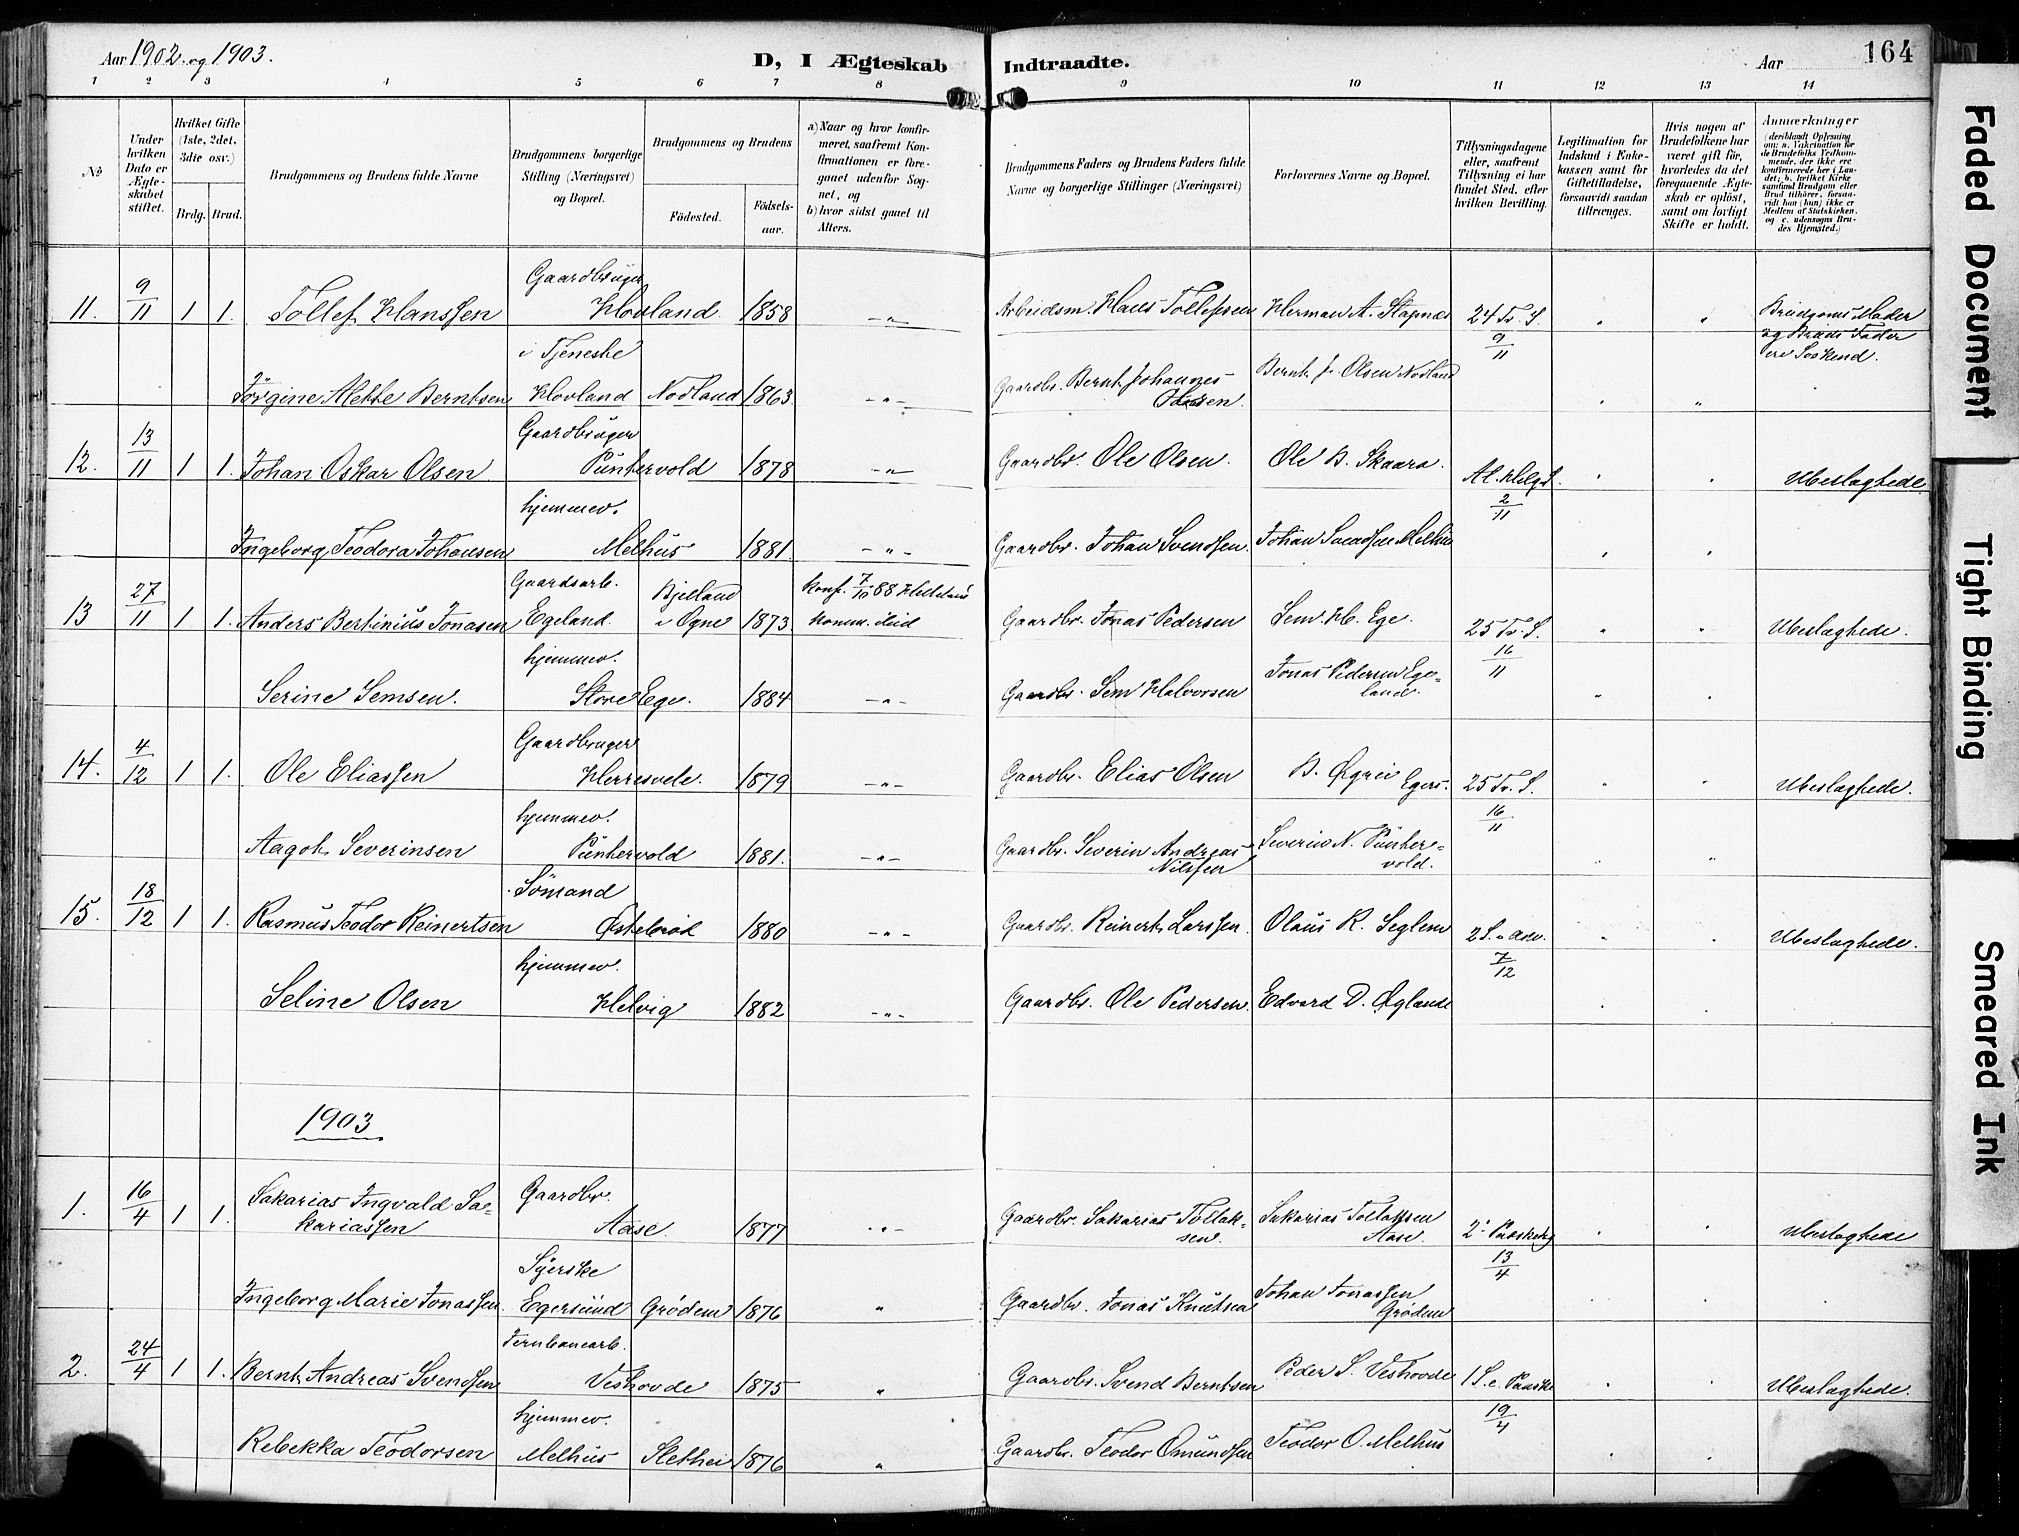 Aar 1902 og 1903.
D, I Ægteskab Indtraadte.
Aar 164
1 2 3 4 5 6 7 8 9 10 11 12 13 14
No
Under hvilken Dato er Ægteskabet stiftet.
Hvilket Gifte (1ste, 2det, 3die osv.)
Brdg. Brud.
Brudgommens og Brudens fulde Navne
Brudgommens borgerlige Stilling (Næringsvei) og Bopæl.
Brudgommens og Brudens
Fødested.
Fødselsaar.
a) Naar og hvor konfirmeret, saafremt Konfirmationen er foregaaet udenfor Sognet, og
b) hvor sidst gaaet til Alters.
Brudgommens Faders og Brudens Faders fulde Navne og borgerlige Stillinger (Næringsvei)
Forlovernes Navne og Bopæl.
Tillysningsdagene eller, saafremt Tillysning ei har fundet Sted, efter hvilken Bevilling.
Legitimation for Indskud i Enkekassen samt for Giftetilladelse, forsaavidt saadan tiltrænges.
Hvis nogen af Brudefolkene har været gift før, hvorledes da det foregaaende Ægteskab er opløst, samt om lovligt Skifte er holdt.
Anmærkninger
(deriblandt Oplysning om: a. Vakcination for de Brudefolks Vedkommende, der ikke ere konfirmerede her i Landet; b. hvilket Kirkesamfund Brudgom eller Brud tilhører, forsaavidt han (hun) ikke er Medlem af Statskirken, og c. udensogns Brudes Hjemsted.)
11. 9/11 1 1. Tollef Hanssen Gaardbruger Hovland 1858 -"- Arbeidsm. Hans Tollefsen Herman A. Stapnes 24 Tr. S. 9/11 " " Brudgoms Moder og Bruds Fader ere Søskend.
Jørgine Alette Berntsen i Tjeneste Hovland Nodland 1863 -"- Gaardbr. Bernt Johannes Olsen Bernt J. Olsen Nodland " "
12. 13/11 1 1. Johan Oskar Olsen Gaardbruger Puntervold 1878 -"- Gaardbr. Ole Olsen. Ole B. Skaara. Al. Helgd. 2/11 " " Ubeslægtede
Ingeborg Teodora Johansen hjemmev. Melhus 1881. -"- Gaardbr. Johan Svendsen. Johan Svendsen Melhus " "
13 27/11 1 1. Anders Bertinius Jonasen Gaardsarb. Egeland Bjelland i Ogne 1873 Konf. 7/10 88 Helleland Komm. ibid Gaardbr. Jonas Pedersen Sem. H. Ege. 25 Tr. S. 16/11 " " Ubeslægtede.
Serine Semsen. hjemmev. Store Ege. 1884 -"- Gaardbr. Sem Halvorsen Jonas Pedersen Egeland. " "
14. 4/12 1 1. Ole Eliassen Gaardbruger Herresvele. 1879 -"- Gaardbr. Elias Olsen B. Øgrei Egers. 25 Tr. S. 16/11 " " Ubeslægtede.
Aagot Severinsen hjemmev. Puntervold 1881. -"- Gaardbr. Severin Andreas Nilssen Severin N. Puntervold. " "
15. 18/12 1 1. Rasmus Teodor Reinertsen Sømand Østebrød 1880 -"- Gaardbr. Reinert Larssen. Olaus R. Seglem 2 S. i Adv. 7/12 " " Ubeslægtede.
Seline Olsen hjemmev. Helvig 1882 -"- Gaardbr. Ole Pedersen. Edvard D. Øglend " "
1903
1. 16/4 1 1. Sakarias Ingvald Sakariassen Gaardbr. Aase 1877 -"- Gaardbr. Sakarias Tollaksen. Sakarias Tollaksen Aase 2. Paaskedg 13/4 " " Ubeslægtede
Ingeborg Marie Jonassen Syerske Egersund Grødem 1876 " Gaardbr. Jonas Knutsen Johan Jonassen Grødem " "
2. 24/4 1 1. Bernt Andreas Svendsen Jernbanearb. Veshovde 1875 " Gaardbr. Svend Berntsen Peder S. Veshovde 1 S. e. Paaske 19/4 " " Ubeslægtede.
Rebekka Teodorsen hjemmev. Melhus Slethei 1876 " Gaardbr. Teodor Omundsen Teodor O. Melhus " "
Faded Document
Tight Binding
Smeared Ink